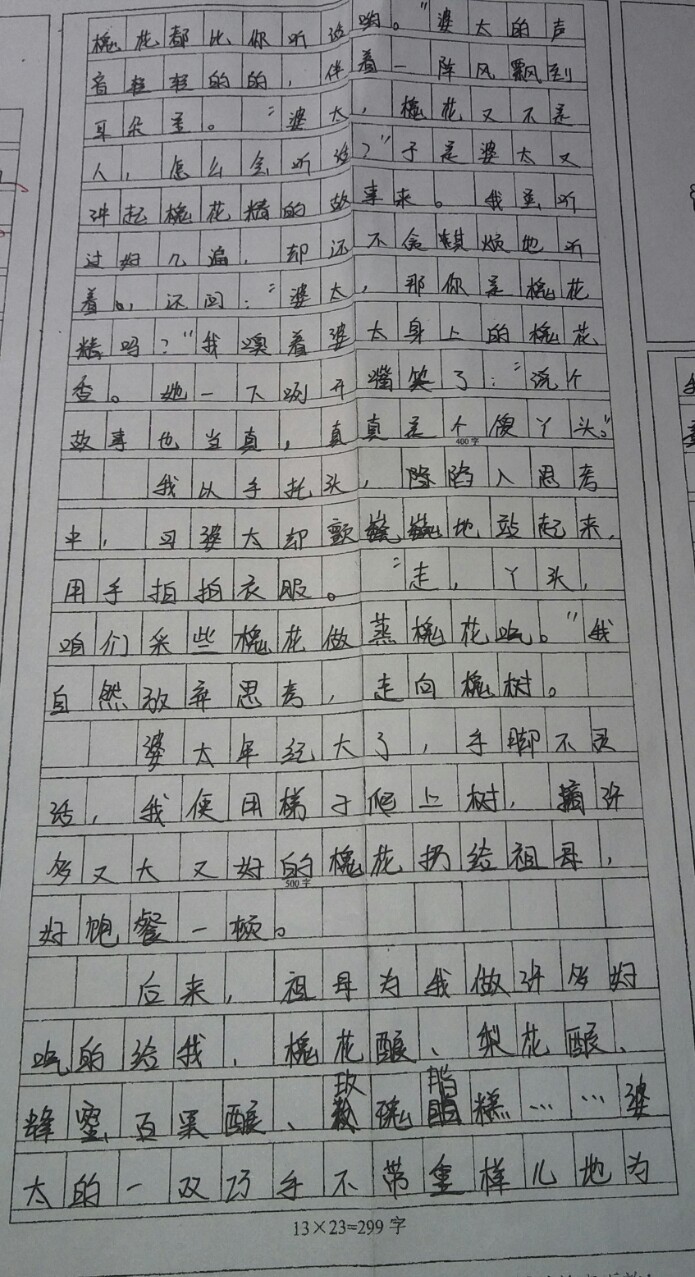 槐花都比你听话哟。”婆太的声
音轻轻的的，伴着一阵风飘到
耳朵里。“婆太，槐花又不是
人，怎么会听话？”于是婆太又
讲起槐花精的故事来。我虽听
过好几遍，却还不舍其烦地听
着。，还问：“婆太，那你是槐花
精吗？”我嗅着婆太身上的槐花
香。她一下咧开嘴笑了：“说个
故事也当真，真真是个傻丫头。”
400字
我以手托头，陷入思考
中，可婆太却颤巍巍地站起来，
用手拍拍衣服。“走，丫头，
咱们采些槐花做蒸槐花吃。”我
自然放弃思考，走向槐树。
婆太年纪大了，手脚不灵
活，我便用梯子爬上树，摘许
多又大又好的槐花扔给祖母，
500字
好饱餐一顿。
后来，祖母为我做许多好
吃的给我，槐花酿、梨花酿、
蜂蜜百果酿、玫瑰脂糕……婆
太的一双巧手不带重样儿地为
13×23=299字